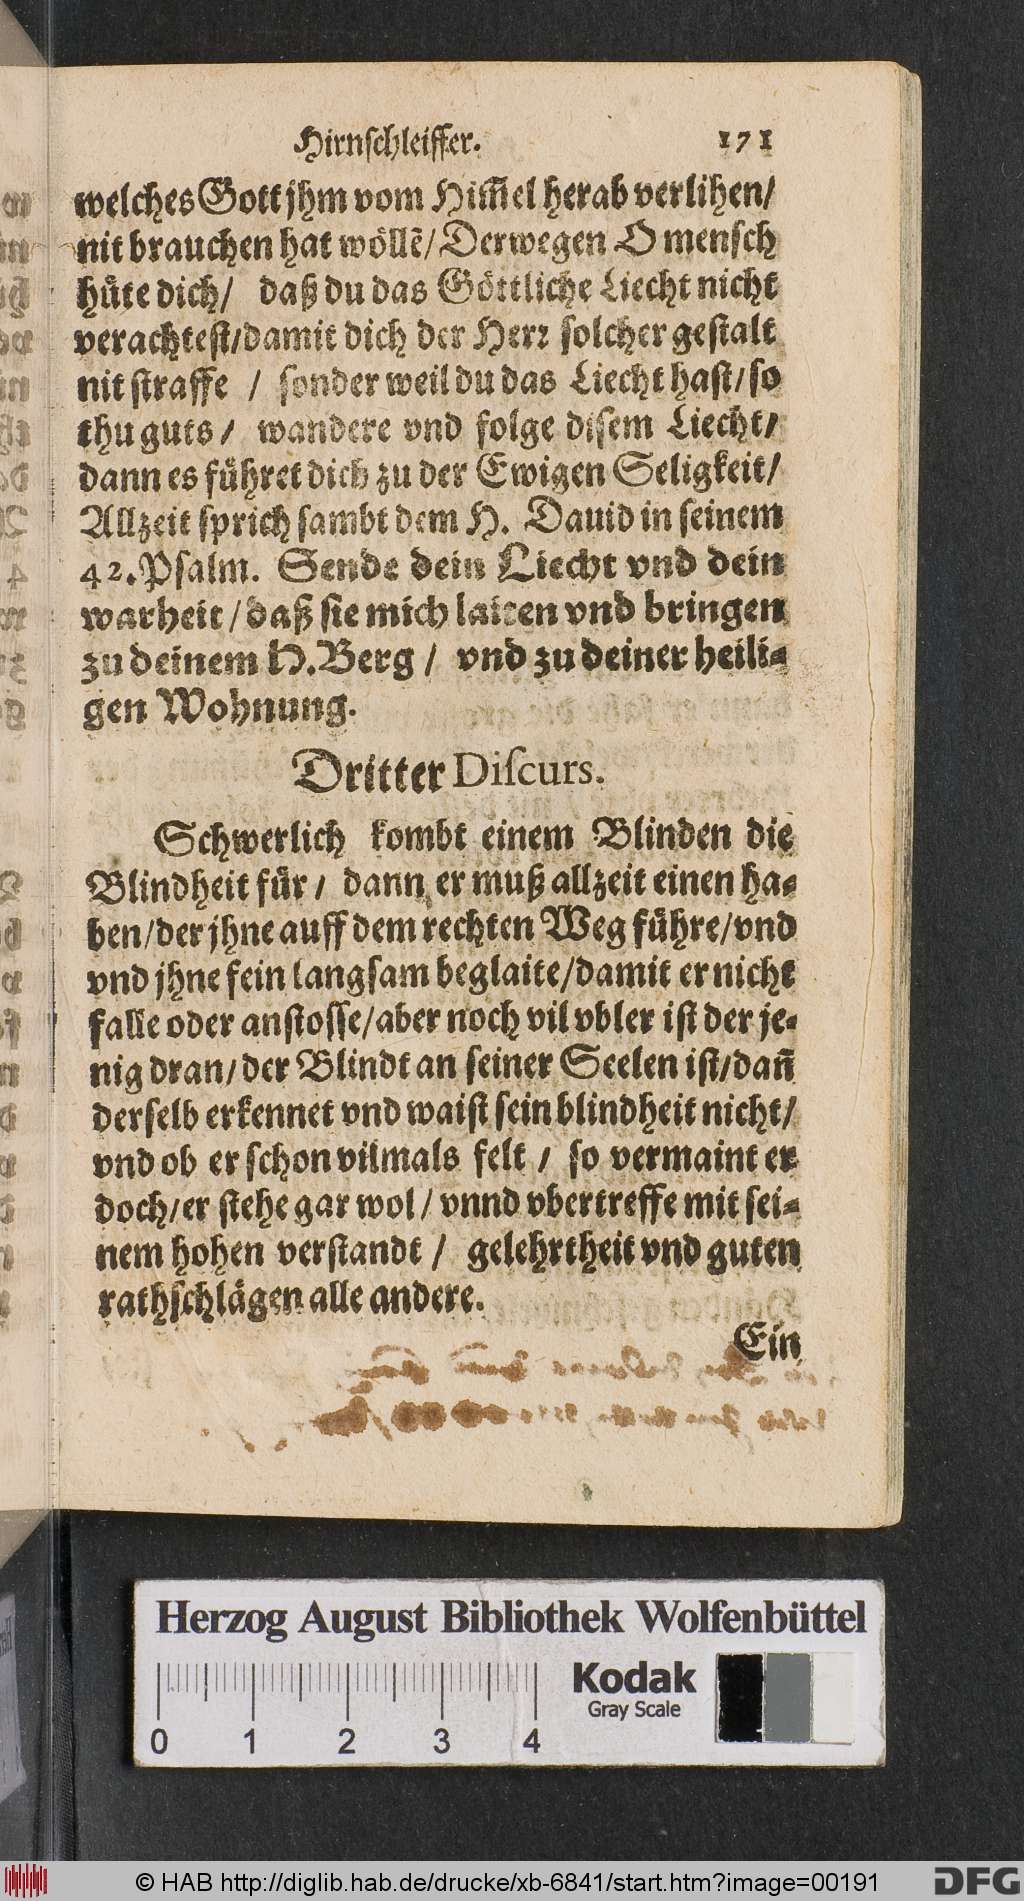 Hirnſchleiffer. 171
welches Gott jhm vom Him̃el herab verlihen/
nit brauchen hat wöllẽ/ Derwegen O menſch
hüte dich/ daß du das Göttliche Liecht nicht
verachteſt/damit dich der Herr ſolcher geſtalt
nit ſtraffe / ſonder weil du das Liecht haſt/ſo
thu guts/ wandere vnd folge diſem Liecht/
dann es führet dich zu der Ewigen Seligkeit/
Allzeit ſprich ſambt dem H. Dauid in ſeinem
42. Pſalm. Sende dein Liecht vnd dein
warheit/daß ſie mich laiten vnd bringen
zu deinem H. Berg/ vnd zu deiner heili-
gen Wohnung.
Dritter Diſcurs.
Schwerlich kombt einem Blinden die
Blindheit für/ dann er muß allzeit einen ha-
ben/der jhne auff dem rechten Weg führe/vnd
vnd jhne fein langſam beglaite/damit er nicht
falle oder anſtoſſe/aber noch vil vbler iſt der je-
nig dran/der Blindt an ſeiner Seelen iſt/dañ
derſelb erkennet vnd waiſt ſein blindheit nicht/
vnd ob er ſchon vilmals felt / ſo vermaint er
doch/er ſtehe gar wol/ vnnd vbertreffe mit ſei-
nem hohen verſtandt / gelehrtheit vnd guten
rathſchlägen alle andere.
Ein
Herzog August Bibliothek Wolfenbüttel
Kodak
Gray Scale
0 1 2 3 4
© HAB http://diglib.hab.de/drucke/xb-6841/start.htm?image=00191
DFG